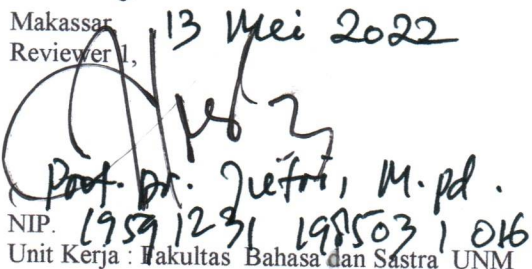 Makassar 13 Mei 2022
Reviewer 1,
Prof. Dr. Juefri, M.pd.
NIP. 19591231 198503 1 016
Unit Kerja : Fakultas Bahasa dan Sastra UNM